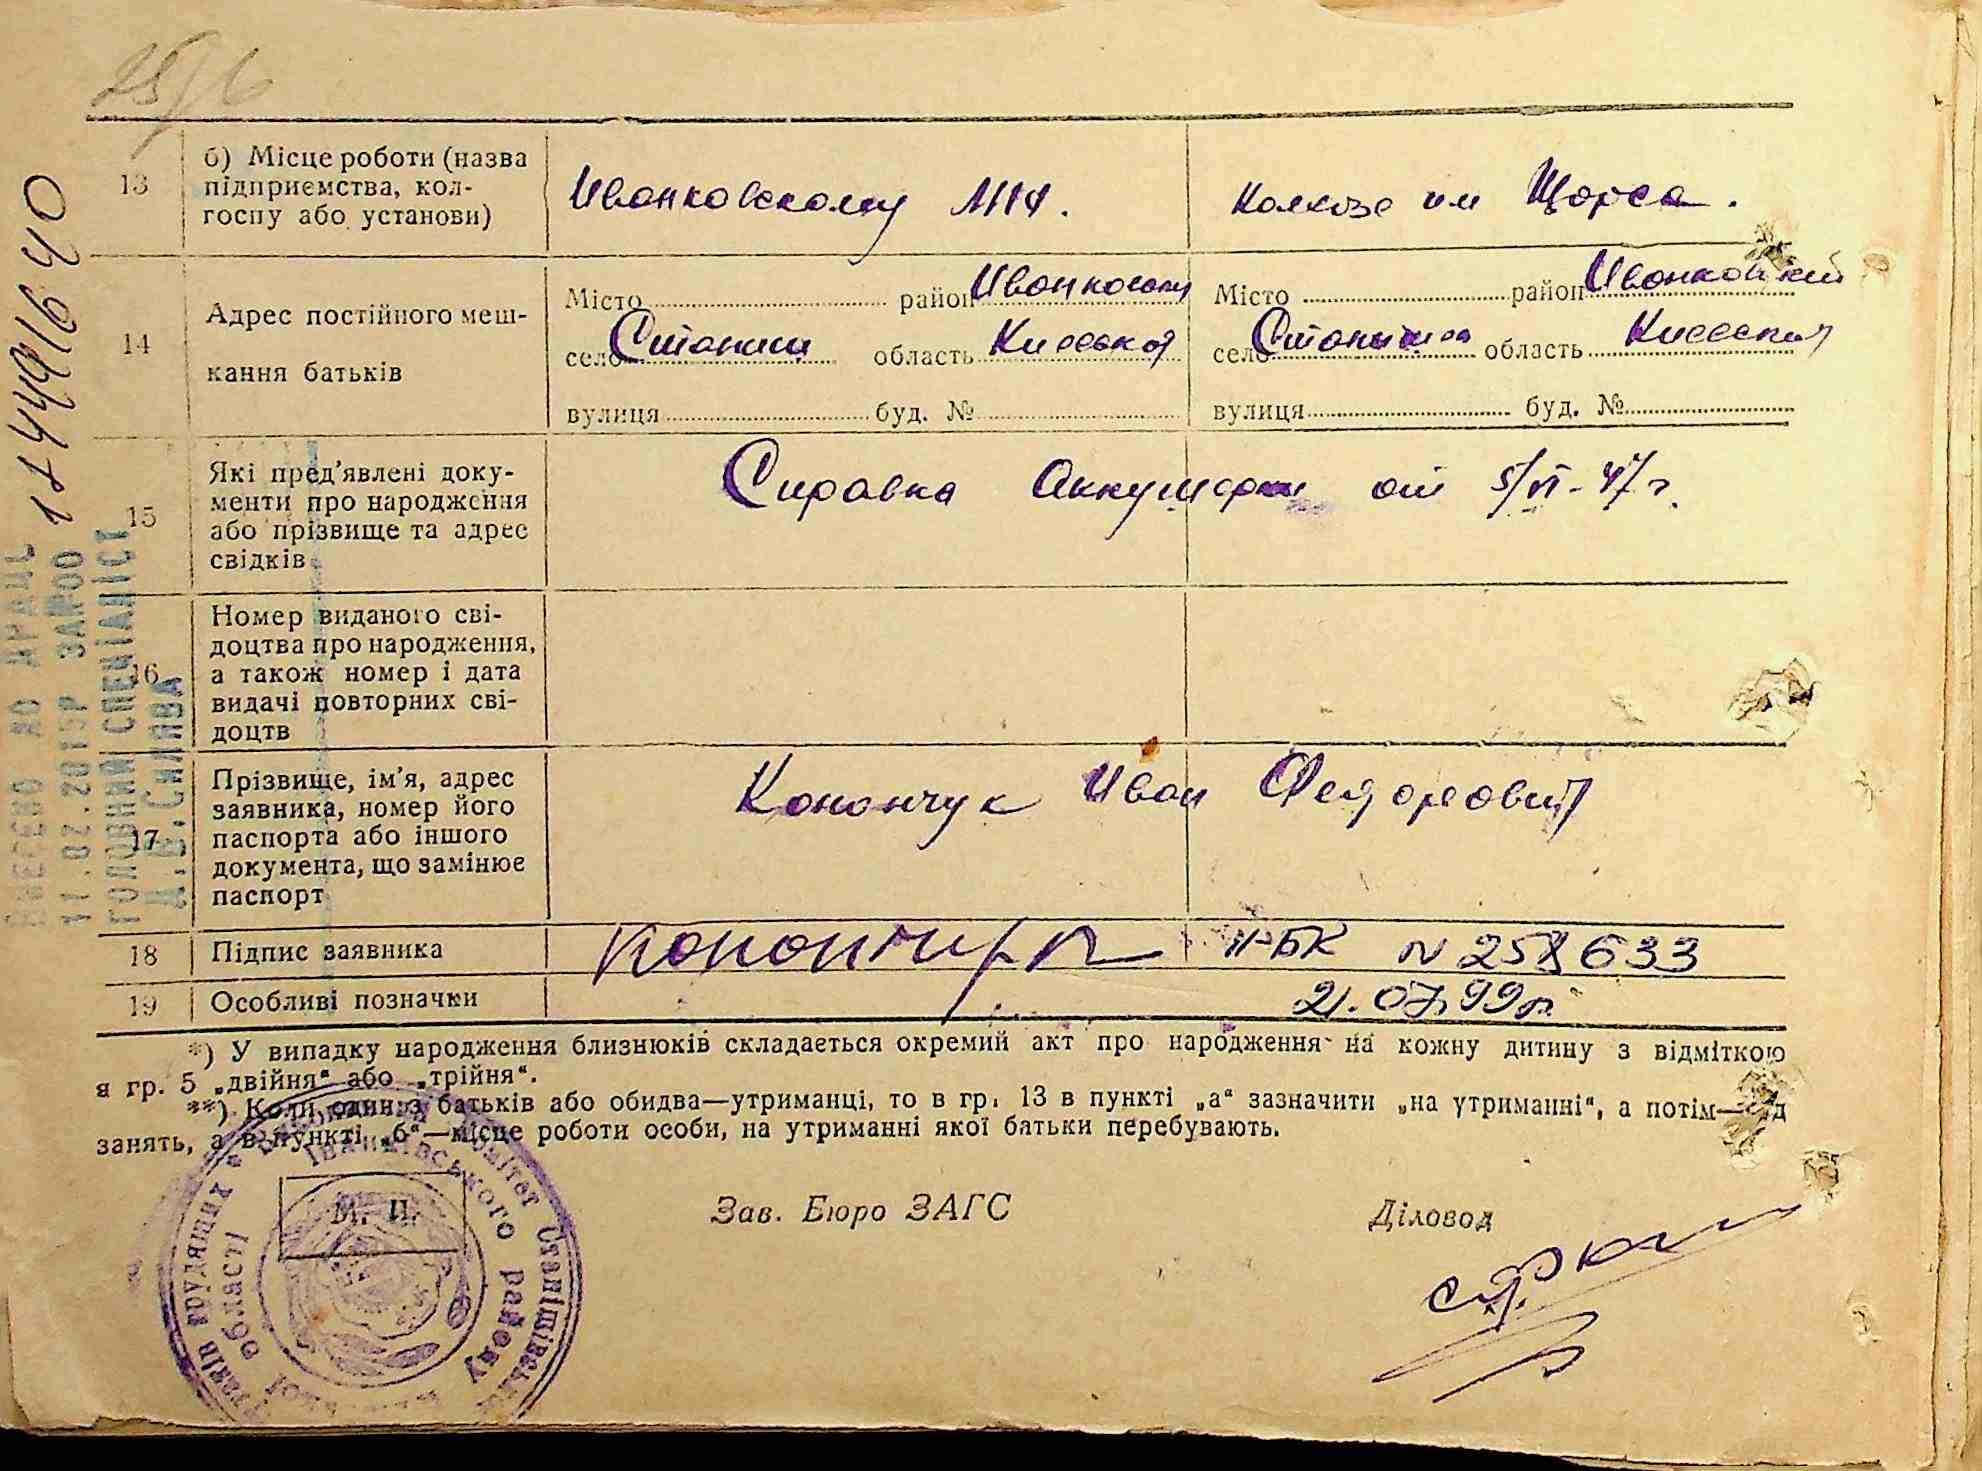 25/6
13
б) Місце роботи (назва
підприємства, кол-
госпу або установи)
Иванковскому
Колхозе им Щорса.
14
Адрес постійного меш-
кання батьків
Місто район Иванковский
село Станиши область Киевская
вулиця буд. №
Місто район Иванковский
село область Киевская
вулиця буд. №
15
Які пред’явлені доку-
менти про народження
або прізвище та адрес
свідків
Справка Аккушерки от 5/VI-47 г.
16
Номер виданого сві-
доцтва про народження,
а також номер і дата
видачі повторних сві-
доцтв
17
Прізвище, ім’я, адрес
заявника, номер його
паспорта або іншого
документа, що замінює
паспорт
Конончук Иван Федорович
18
Підпис заявника
II-БК № 258633
19
Особливі позначки
21.07.99р.
*) У випадку народження близнюків складається окремий акт про народження на кожну дитину з відміткою
в гр. 5 „двійня“ або „трійня“.
**) Коли один з батьків або обидва—утриманці, то в гр. 13 в пункті „а“ зазначити „на утриманні“, а потім—
занять, а в пункті „б“—місце роботи особи, на утриманні якої батьки перебувають.
М. П.
Зав. Бюро ЗАГС
Діловод
ВНЕСЕНО ДО ДРАЦС
11.02.2015Р ЗА №00
1744916940
ГОЛОВНИЙ СПЕЦІАЛІСТ
комітет Станішівської
Іванківського району
області
трудящих